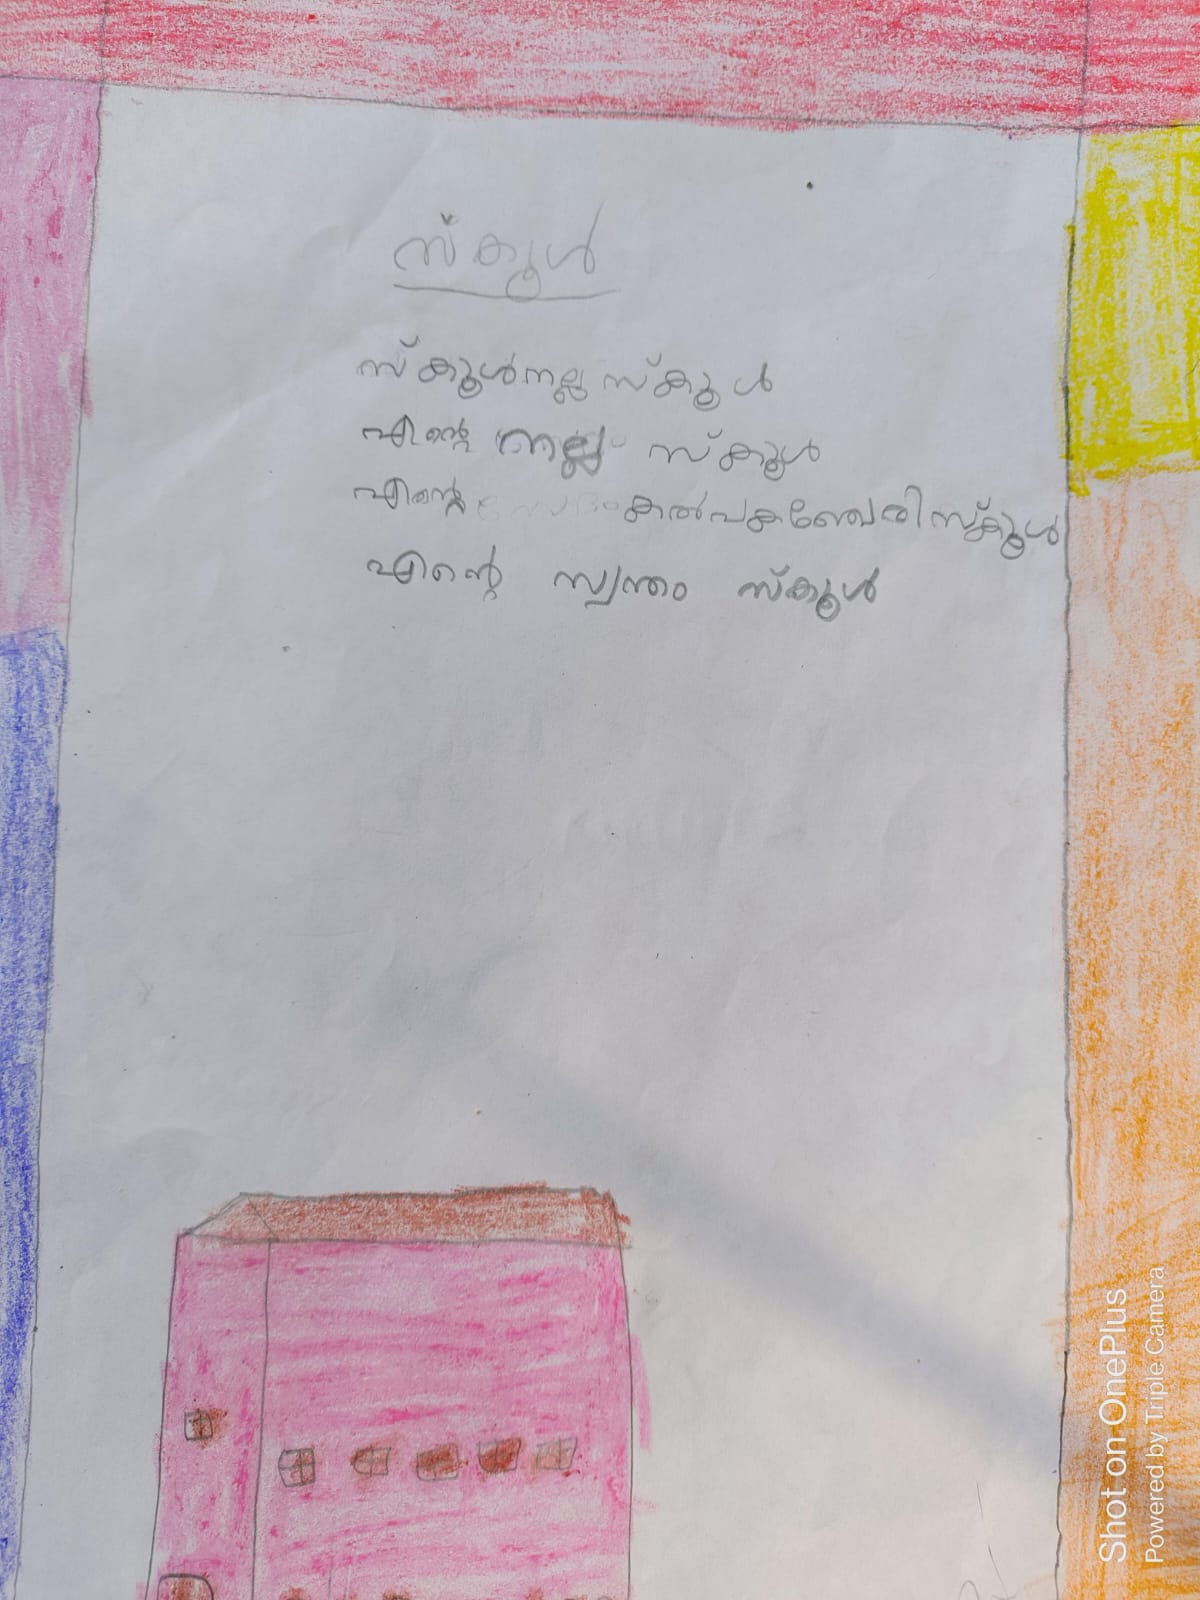 സ്കൂൾ
സ്കൂൾ നല്ല സ്കൂൾ
എന്റെ നല്ല സ്കൂൾ
എന്റെ കൽപകഞ്ചേരി സ്കൂൾ
എന്റെ സ്വന്തം സ്കൂൾ
Shot on OnePlus
Powered by Triple Camera